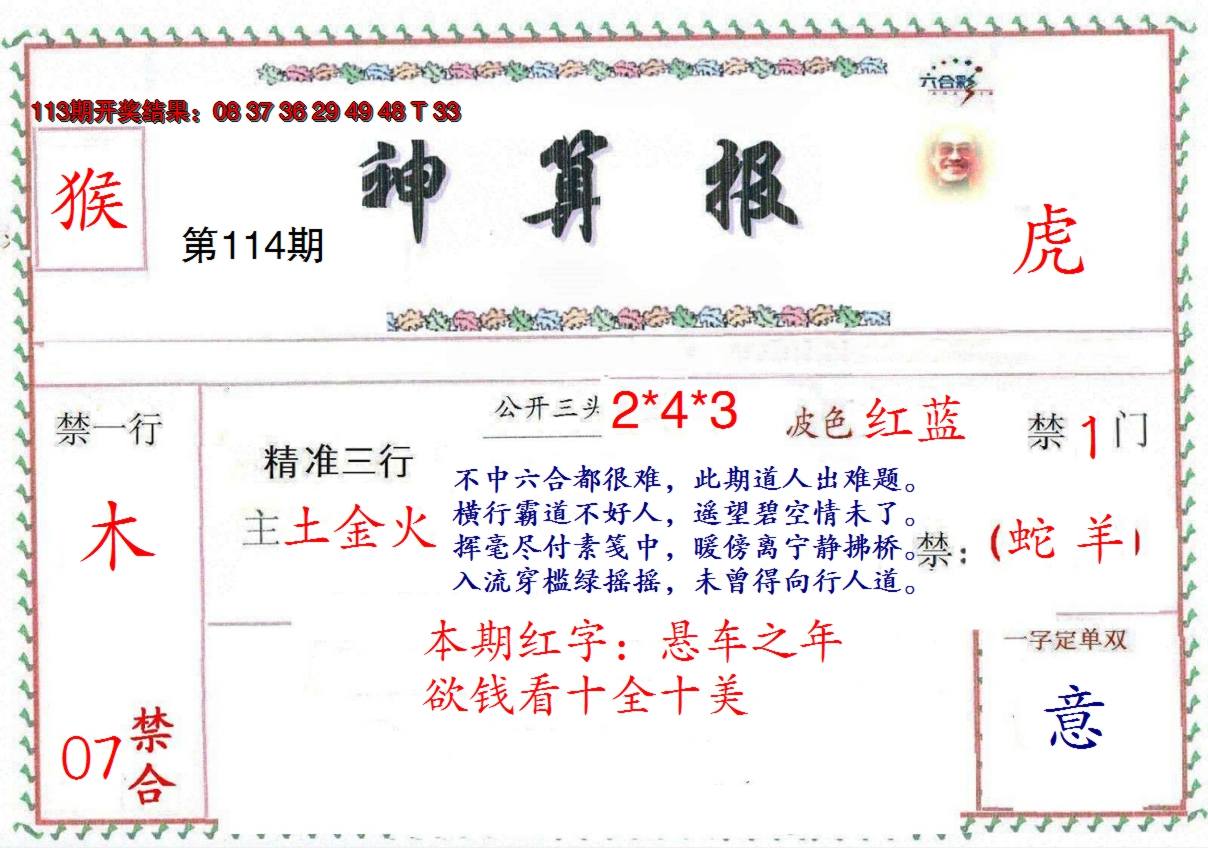 六合彩
113期开奖结果：08 37 36 29 49 48 T 33
神算报
猴
第114期
虎
禁一行
木
07禁合
公开三头 2*4*3
波色 红蓝
禁1门
精准三行
主土金火
不中六合都很难，此期道人出难题。
横行霸道不好人，遥望碧空情未了。
挥毫尽付素笺中，暖傍离宁静拂桥。
入流穿槛绿摇摇，未曾得向行人道。
禁：（蛇 羊）
本期红字：悬车之年
欲钱看十全十美
一字定单双
意